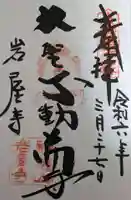 奉拝
令和六年
三月二十七日
不動尊
岩屋寺